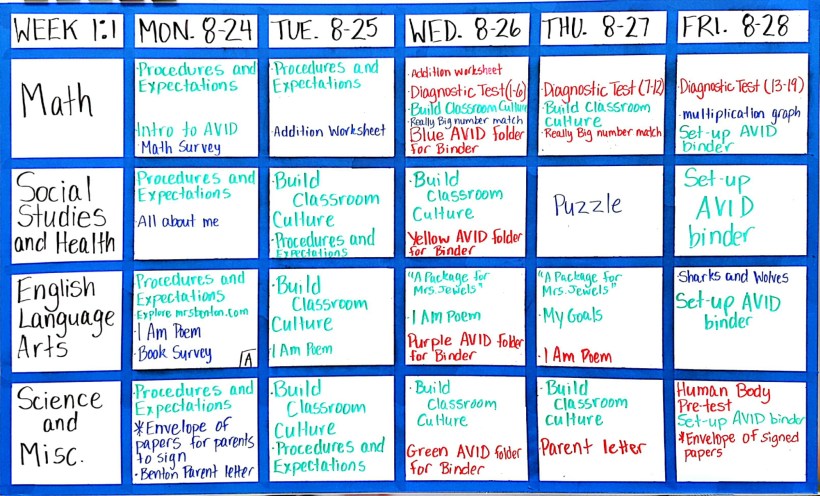 WEEK 1:1
MON. 8-24
TUE. 8-25
WED. 8-26
THU. 8-27
FRI. 8-28
Math
·Procedures and
Expectations
·Intro to AVID
·Math Survey
·Procedures and
Expectations
·Addition Worksheet
·Addition worksheet
·Diagnostic Test (1-6)
·Build Classroom Culture
·Really Big number match
Blue AVID folder
for Binder
·Diagnostic Test (7-12)
·Build Classroom
Culture
·Really Big number match
·Diagnostic Test (13-19)
·multiplication graph
Set-up AVID
binder
Social
Studies
and Health
·Procedures and
Expectations
·All about me
·Build
Classroom
Culture
·Procedures and
Expectations
·Build
Classroom
Culture
Yellow AVID folder
for Binder
Puzzle
Set-up
AVID
binder
English
Language
Arts
Procedures and
Expectations
Explore mrsbenton.com
·I Am Poem
·Book Survey
A
·Build
Classroom
Culture
·I Am Poem
"A Package for
Mrs. Jewels"
·I Am Poem
Purple AVID folder
for Binder
"A Package for
Mrs. Jewels"
·My Goals
·I Am Poem
Sharks and Wolves
Set-up AVID
binder
Science
and
Misc.
·Procedures and
Expectations
*Envelope of
papers for parents
to sign
·Benton Parent letter
·Build
Classroom
Culture
·Procedures and
Expectations
·Build
Classroom
Culture
Green AVID folder
for Binder
·Build
Classroom
Culture
Parent letter
Human Body
Pre-test
Set-up AVID binder
*Envelope of signed
papers